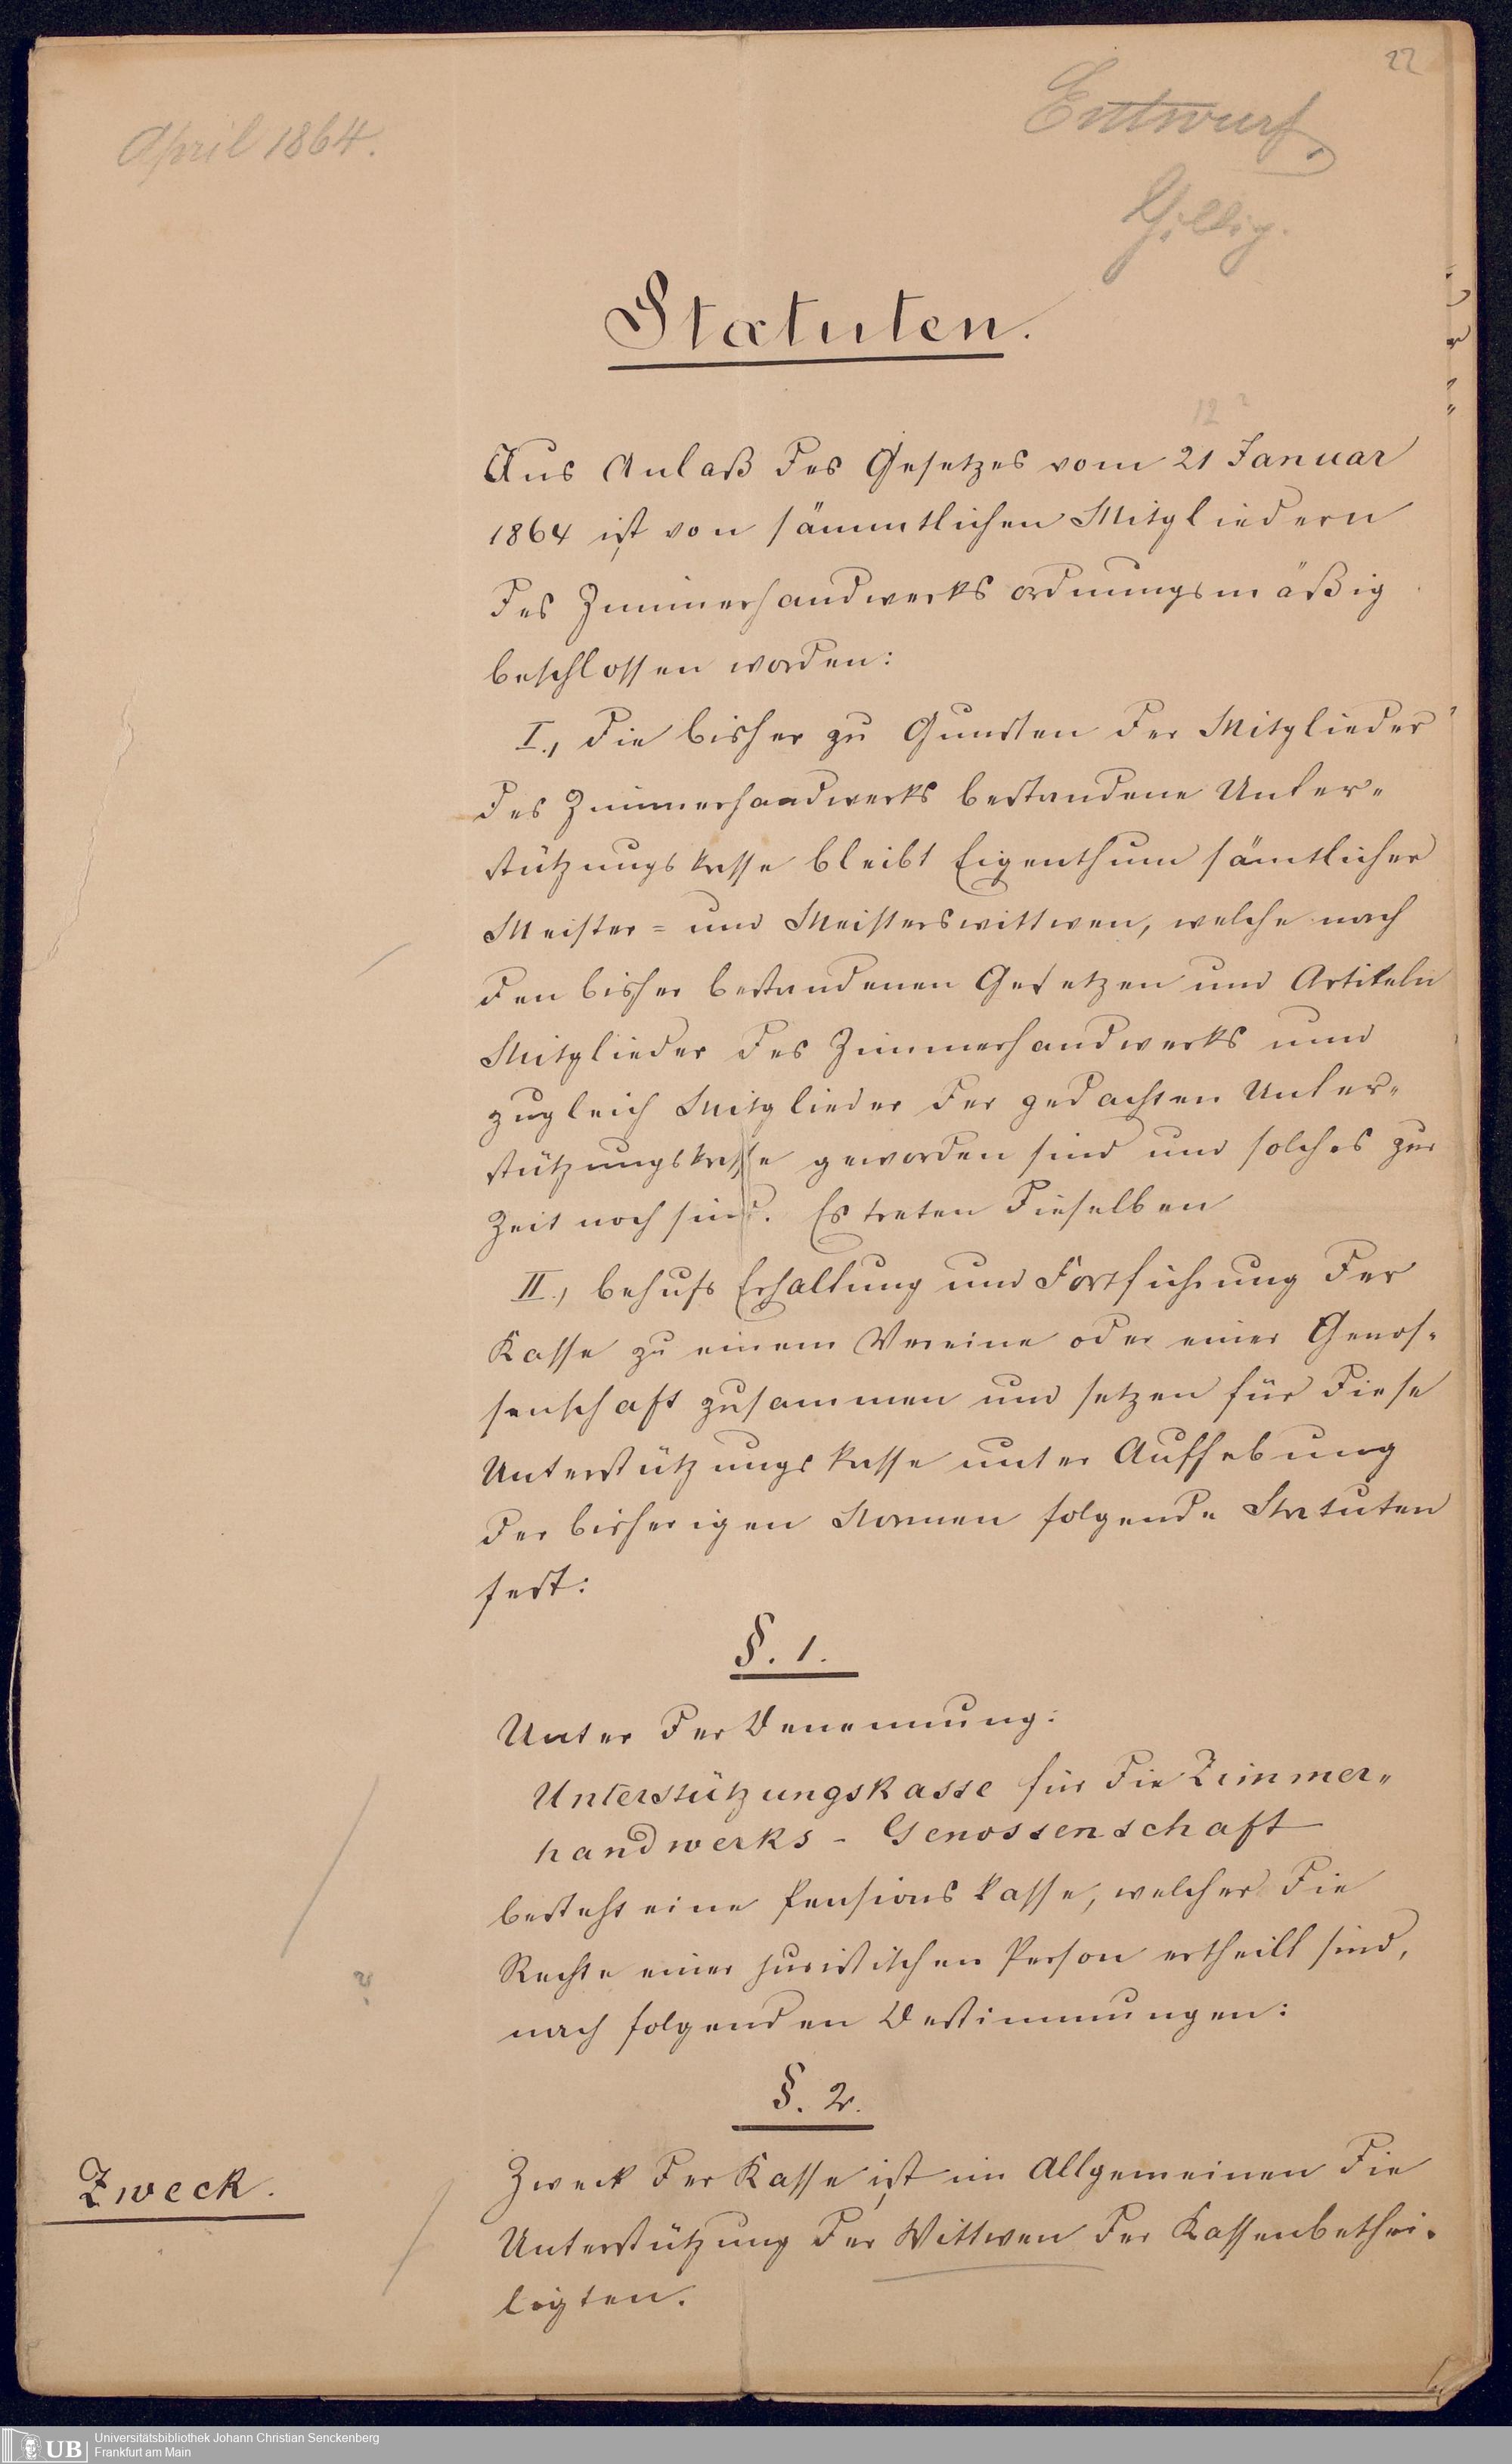 22
April 1864.
Entwurf
Statuten.
12?
Aus Anlaß des Gesetzes vom 21 Januar
1864 ist von sämmtlichen Mitgliedern
des Zimmerhandwerks ordnungsmäßig
beschlossen worden:
I., die bisher zu Gunsten der Mitglieder
des Zimmerhandwerks bestandene Unter-
stützungskasse bleibt Eigenthum sämtlicher
Meister= und Meisterswittwen, welche nach
den bisher bestandenen Gesetzen und Artikeln
Mitglieder des Zimmerhandwerks und
zugleich Mitglieder der gedachten Unter-
stützungskasse geworden sind und solches zur
Zeit noch sind. Es treten dieselben
II., behufs Erhaltung und Fortführung der
Kasse zu einem Vereine oder einer Genos-
senschaft zusammen und setzen für diese
Unterstützungskasse unter Aufhebung
der bisherigen Normen folgende Statuten
fest:
§. 1.
Unter der Benennung:
Unterstützungskasse für die Zimmer-
handwerks - Genossenschaft
besteht eine Pensionskasse, welcher die
Rechte einer juristischen Person ertheilt sind,
?
nach folgenden Bestimmungen:
§. 2.
Zweck.
Zweck der Kasse ist im Allgemeinen die
Unterstützung der Wittwen der Kassenbethei-
ligten.
UB
Universitätsbibliothek Johann Christian Senckenberg
Frankfurt am Main